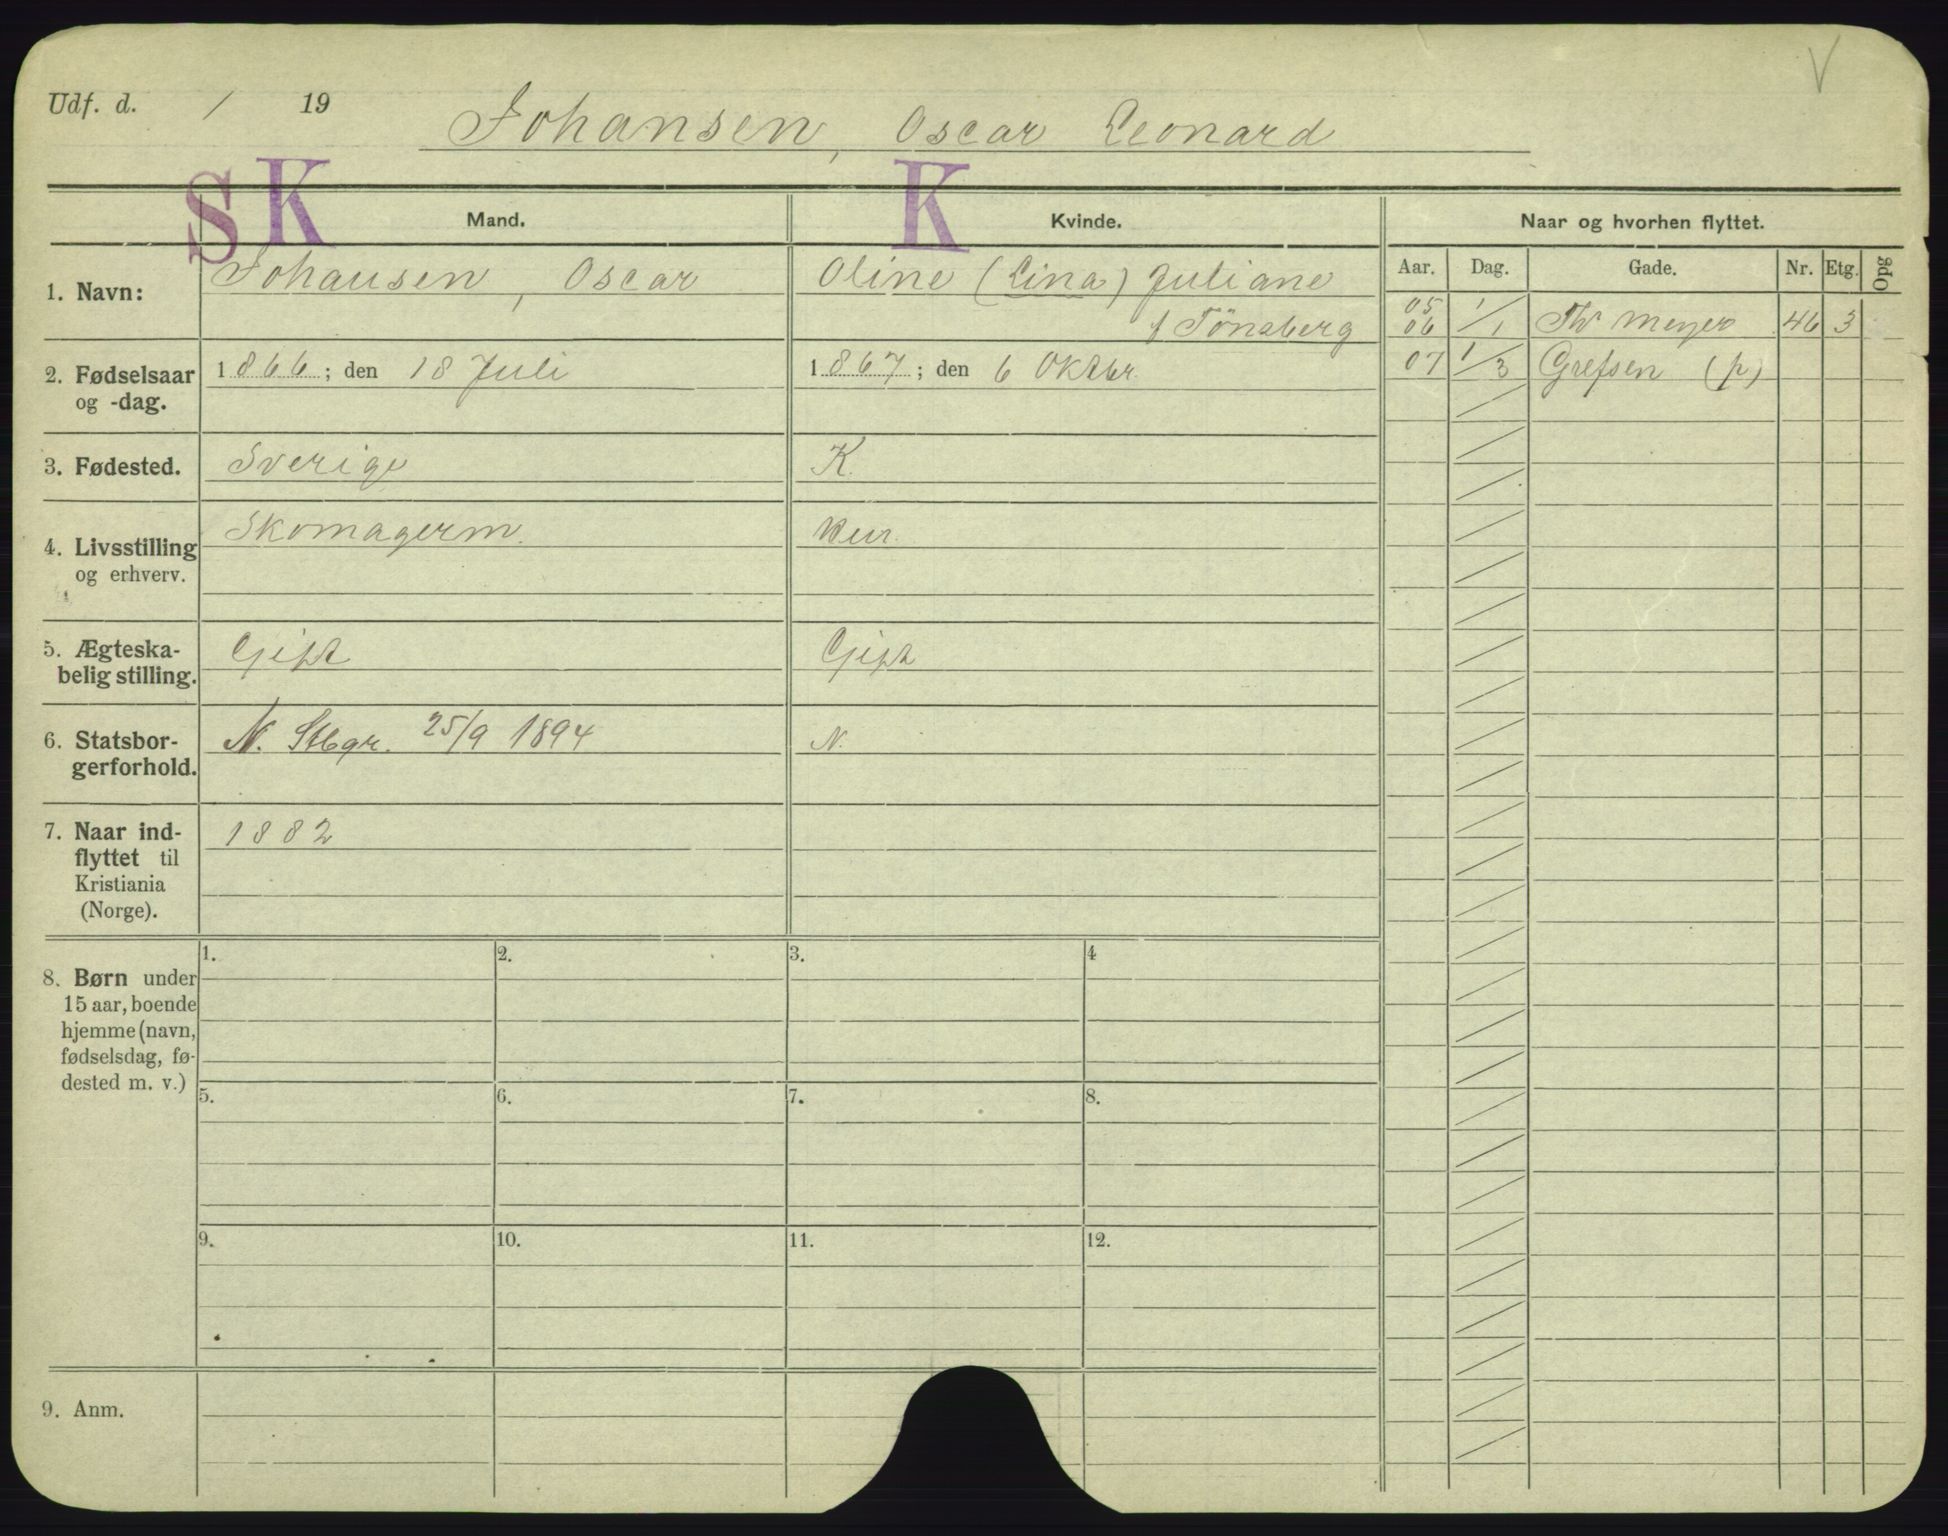 Udf. d. / 19
Johansen, Oscar Leonard
V
S K K
Mand. Kvinde. Naar og hvorhen flyttet.
Aar. Dag. Gade. Nr. Etg. Opg
1. Navn: Johansen, Oscar Oline (Lina) Juliane
f Tönsberg
05
06 1/1 Th Meyer 46 3
07 1/3 Grefsen (p)
2. Fødselsaar 1866; den 18 Juli 1867; den 6 Oktbr.
og -dag.
3. Fødested. Sverige K.
4. Livsstilling Skomagerm.
og erhverv.
5. Ægteska- Gift Gift
belig stilling.
6. Statsbor- N. Stbgr. 25/9 1894 N.
gerforhold.
7. Naar ind- 1882
flyttet til
Kristiania
(Norge).
8. Børn under
15 aar, boende
hjemme (navn,
fødselsdag, fø-
dested m. v.)
1. 2. 3. 4
5. 6. 7. 8.
9. 10. 11. 12.
9. Anm.